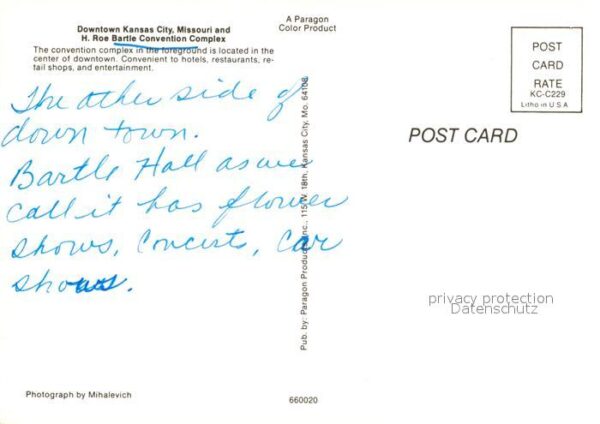 Downtown Kansas City, Missouri and
H. Roe Bartle Convention Complex
The convention complex in the foreground is located in the
center of downtown. Convenient to hotels, restaurants, re-
tail shops, and entertainment.
A Paragon
Color Product
POST
CARD
RATE
KC-C229
Litho in U S A
The other side of
down town.
Bartle Hall as we
call it has flower
shows, Concerts, Car
shows.
POST CARD
Pub. by: Paragon Products Inc., 115 W. 18th, Kansas City, Mo. 64108
privacy protection
Datenschutz
Photograph by Mihalevich
660020